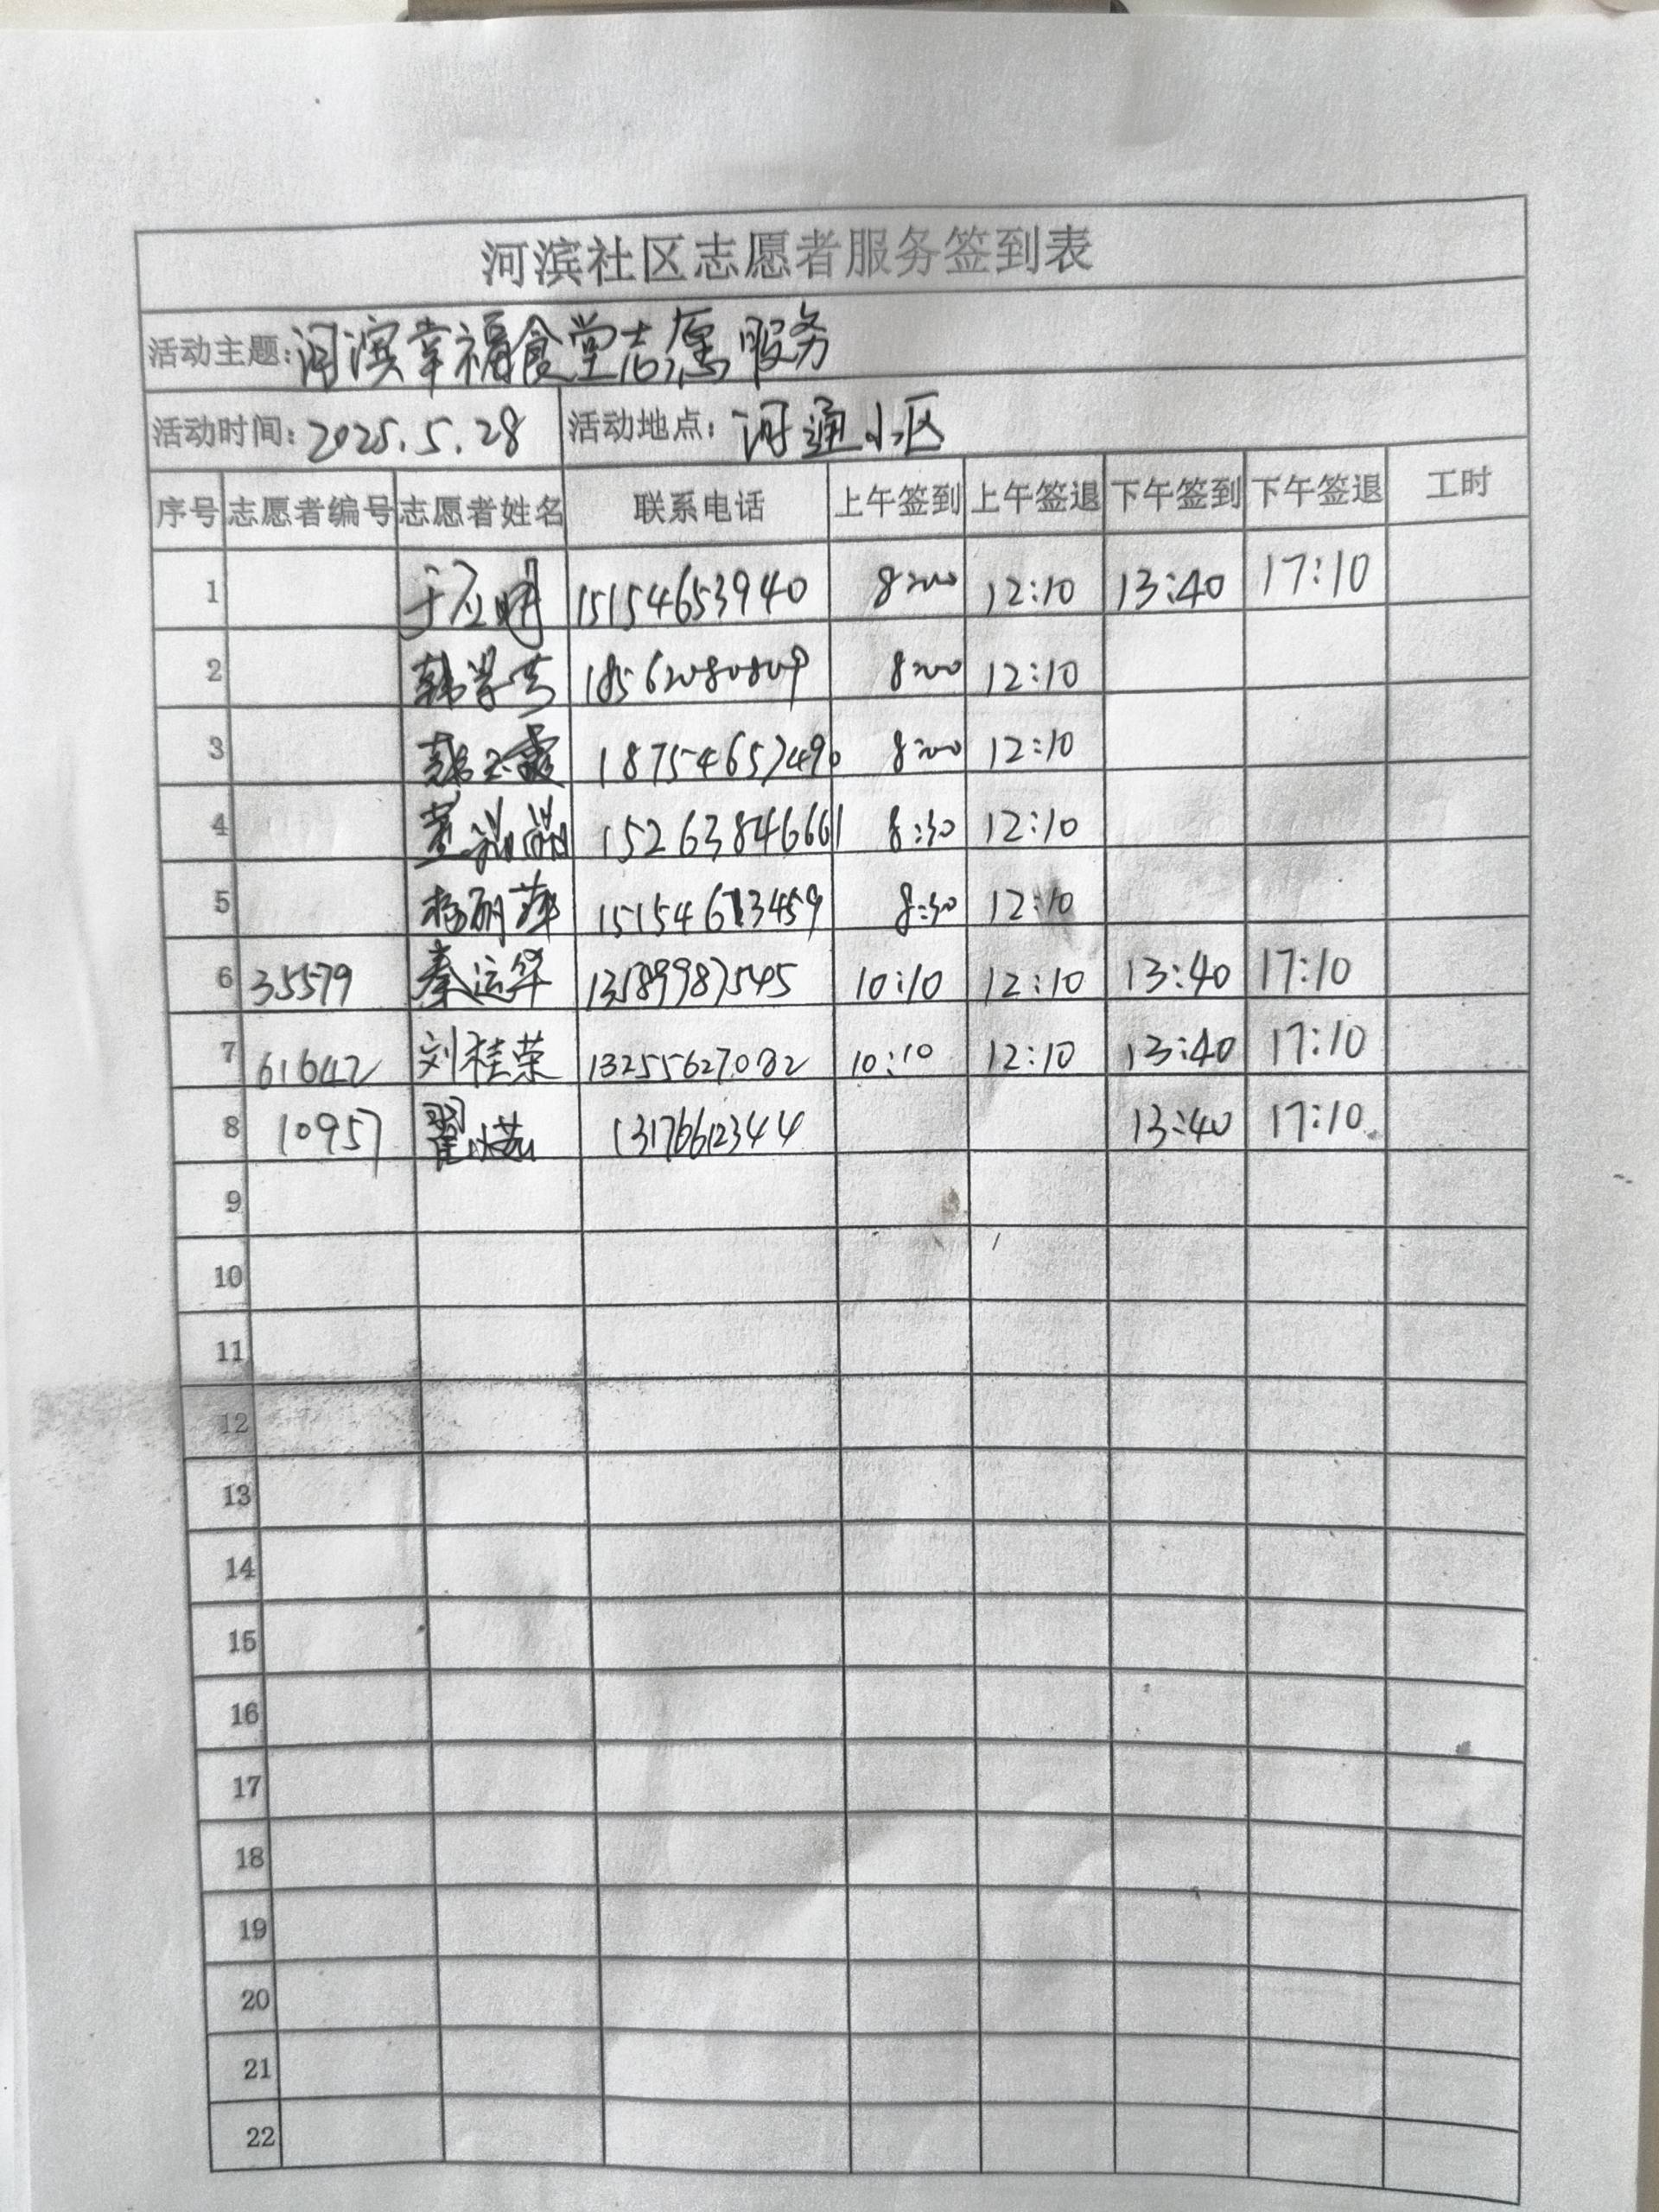 河滨社区志愿者服务签到表
活动主题：河滨幸福食堂志愿服务
活动时间：2025.5.28 活动地点：河通小区
序号 志愿者编号 志愿者姓名 联系电话 上午签到 上午签退 下午签到 下午签退 工时
1 于应 15154653940 8:00 12:10 13:40 17:10
2 韩学 18562080809 8:00 12:10
3 18754657490 8:00 12:10
4 董 15263846661 8:30 12:10
5 杨丽萍 8:30 12:10
6 35579 秦运华 13589987545 10:10 12:10 13:40 17:10
7 61642 刘桂荣 13255627082 10:10 12:10 13:40 17:10
8 10957 翟 13176612344 13:40 17:10
9
10
11
12
13
14
15
16
17
18
19
20
21
22